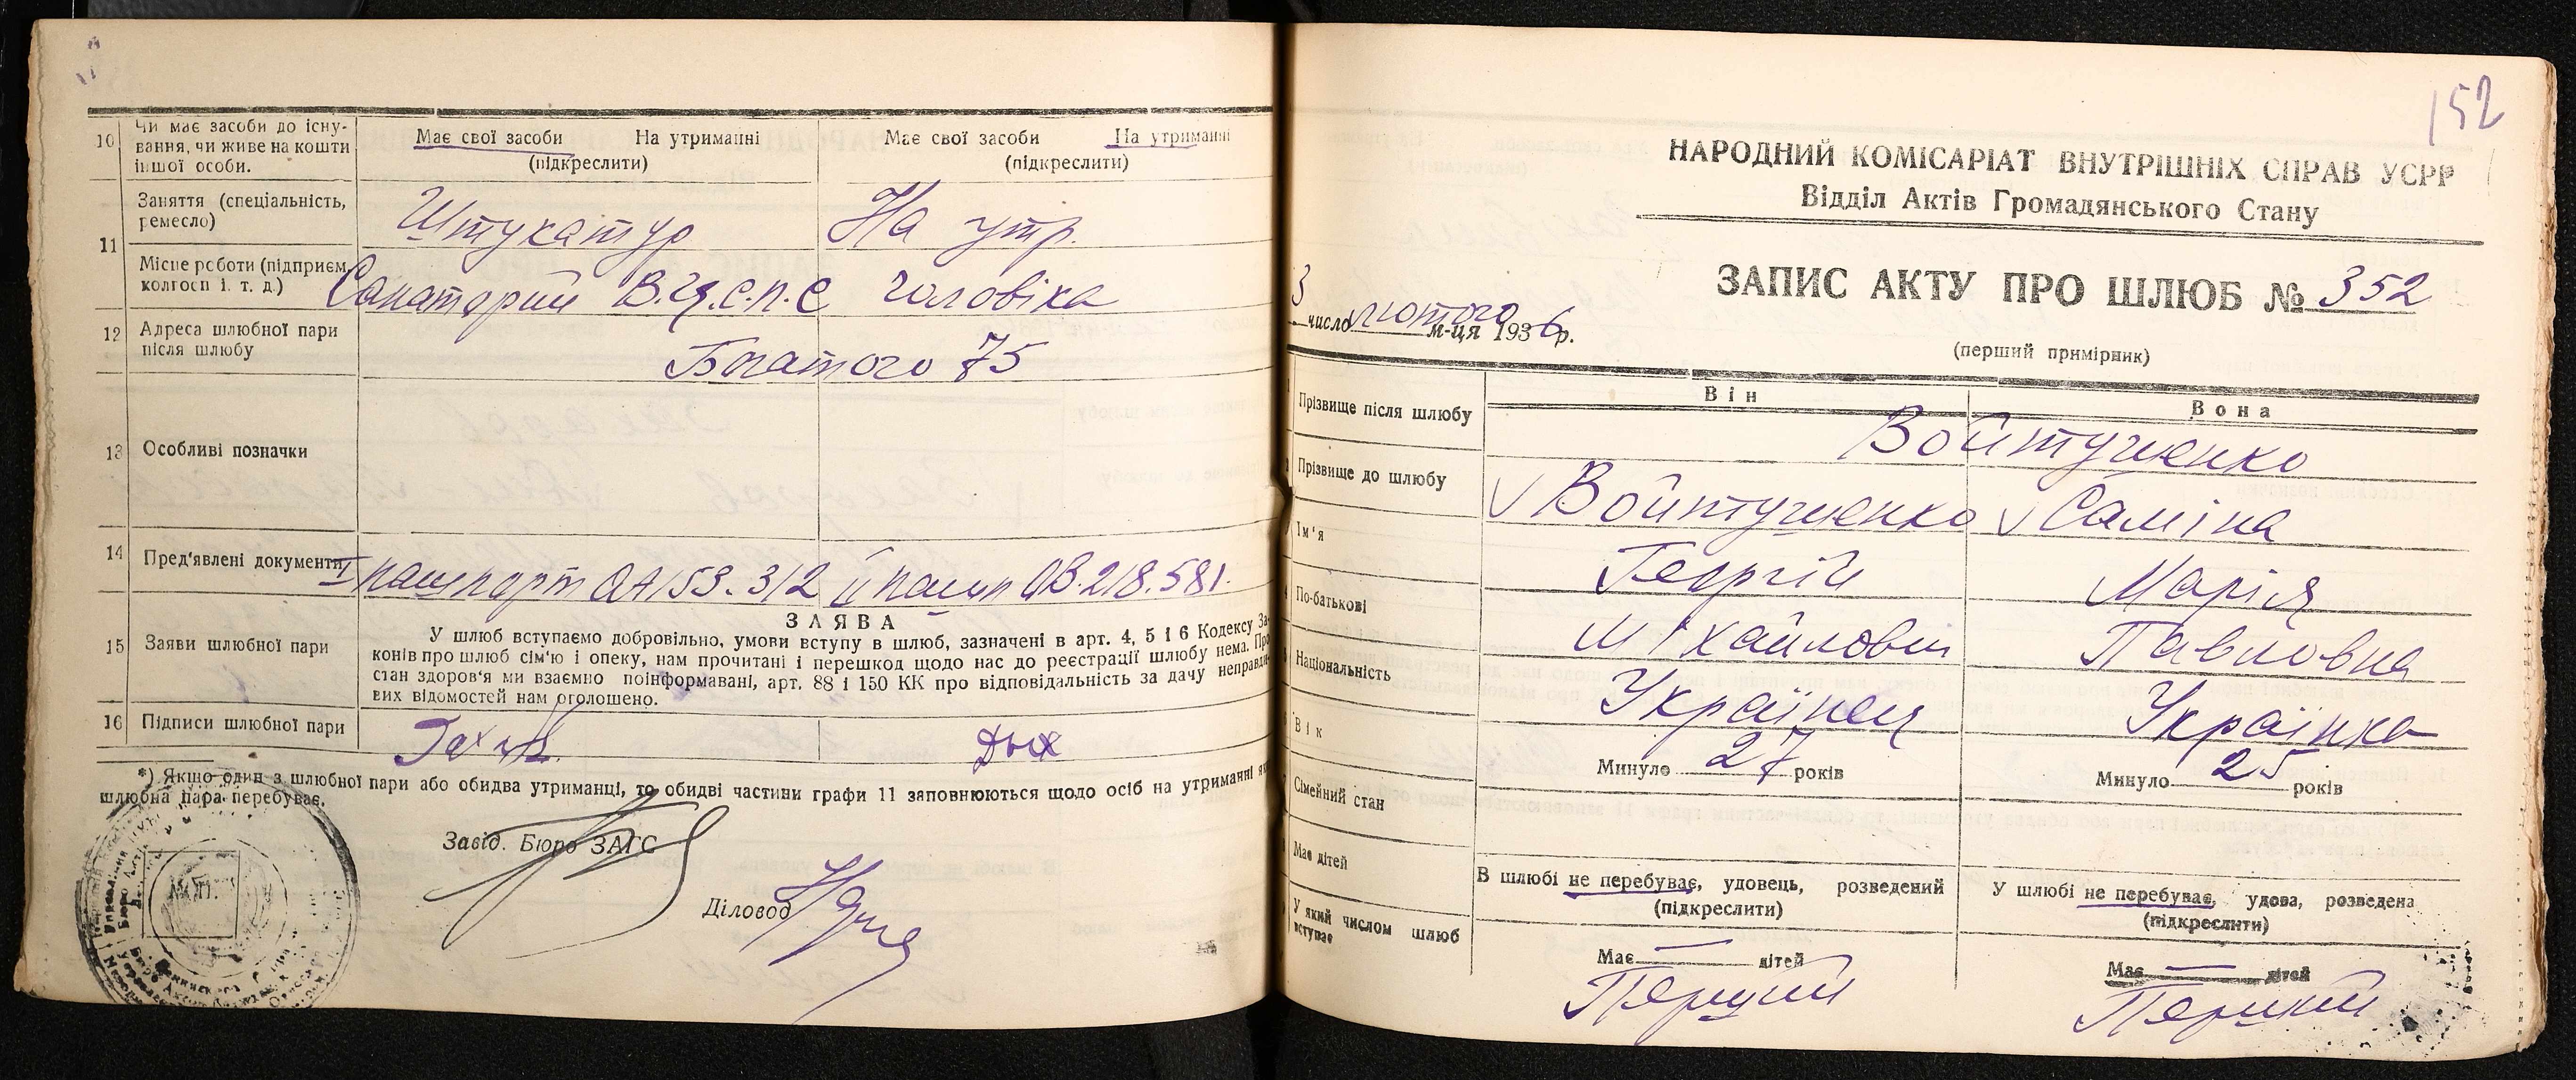 10 Чи має засоби до існу-
вання, чи живе на кошти
іншої особи.
Має свої засоби На утриманні
(підкреслити)
Має свої засоби На утриманні
(підкреслити)
11 Заняття (спеціальність,
ремесло)
Штукатур
На утр.
Місце роботи (підприєм.
колгосп і. т. д.)
Санаторий В.Ц.С.П.С
чоловіка
12 Адреса шлюбної пари
після шлюбу
Богатого 75
13 Особливі позначки
14 Пред'явлені документи
I паспорт ОА 153-312 II пасп ОВ.218.581.
15 Заяви шлюбної пари
ЗАЯВА
У шлюб вступаємо добровільно, умови вступу в шлюб, зазначені в арт. 4, 5 і 6 Кодексу За-
конів про шлюб сім'ю і опеку, нам прочитані і перешкод щодо нас до реєстрації шлюбу нема. Про
стан здоров'я ми взаємно поінформавані, арт. 88 і 150 КК про відповідальність за дачу неправди-
вих відомостей нам оголошено.
16 Підписи шлюбної пари
*) Якщо один з шлюбної пари або обидва утриманці, то обидві частини графи 11 заповнюються щодо осіб на утриманні
шлюбна пара перебуває.
Завід. Бюро ЗАГС
Діловод
152
НАРОДНИЙ КОМІСАРІАТ ВНУТРІШНІХ СПРАВ УСРР
Відділ Актів Громадянського Стану
ЗАПИС АКТУ ПРО ШЛЮБ № 352
3 число лютого м-ця 1936 р.
(перший примірник)
Він
Вона
Прізвище після шлюбу
Войтученко
Прізвище до шлюбу
Войтученко
Саліна
Ім'я
Георгій
Марія
По-батькові
Міхайлович
Павловна
Національність
Українец
Українка
Вік
Минуло 27 років
Минуло 25 років
Сімейний стан
В шлюбі не перебуває, удовець, розведений
(підкреслити)
У шлюбі не перебуває, удова, розведена
(підкреслити)
Має дітей
Має — дітей
Має — дітей
У який числом шлюб
вступає
Перший
Перший